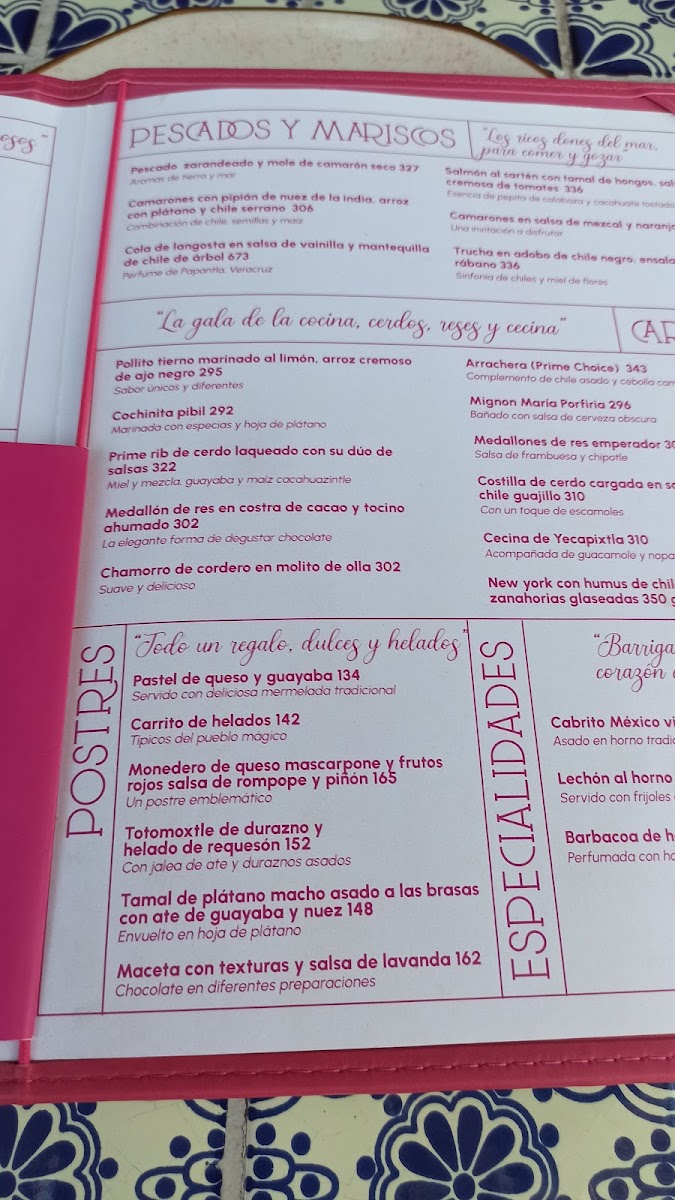 eses"
PESCADOS Y MARISCOS
"Los ricos dones del mar,
para comer y gozar
Pescado zarandeado y mole de camarón seco 327
Aromas de tierra y mar
Camarones con pipián de nuez de la india, arroz
con plátano y chile serrano 306
Combinación de chile, semillas y maíz
Cola de langosta en salsa de vainilla y mantequilla
de chile de árbol 673
Perfume de Papantla, Veracruz
Salmón al sartén con tamal de hongos, sal
cremosa de tomates 336
Esencia de pepita de calabaza y cacahuate tostado
Camarones en salsa de mezcal y naranj
Una invitación a disfrutar
Trucha en adobo de chile negro, ensala
rábano 336
Sinfonía de chiles y miel de flores
"La gala de la cocina, cerdos, reses y cecina"
CAR
Pollito tierno marinado al limón, arroz cremoso
de ajo negro 295
Sabor únicos y diferentes
Cochinita pibil 292
Marinada con especias y hoja de plátano
Prime rib de cerdo laqueado con su dúo de
salsas 322
Miel y mezcla, guayaba y maíz cacahuazintle
Medallón de res en costra de cacao y tocino
ahumado 302
La elegante forma de degustar chocolate
Chamorro de cordero en molito de olla 302
Suave y delicioso
Arrachera (Prime Choice) 343
Complemento de chile asado y cebolla cam
Mignon María Porfiria 296
Bañado con salsa de cerveza obscura
Medallones de res emperador 30
Salsa de frambuesa y chipotle
Costilla de cerdo cargada en sa
chile guajillo 310
Con un toque de escamoles
Cecina de Yecapixtla 310
Acompañada de guacamole y nopa
New york con humus de chil
zanahorias glaseadas 350 g
POSTRES
"Todo un regalo, dulces y helados"
Pastel de queso y guayaba 134
Servido con deliciosa mermelada tradicional
Carrito de helados 142
Típicos del pueblo mágico
Monedero de queso mascarpone y frutos
rojos salsa de rompope y piñón 165
Un postre emblemático
Totomoxtle de durazno y
helado de requesón 152
Con jalea de ate y duraznos asados
Tamal de plátano macho asado a las brasas
con ate de guayaba y nuez 148
Envuelto en hoja de plátano
Maceta con texturas y salsa de lavanda 162
Chocolate en diferentes preparaciones
ESPECIALIDADES
"Barriga
corazón
Cabrito México vi
Asado en horno tradi
Lechón al horno
Servido con frijoles
Barbacoa de h
Perfumada con ho